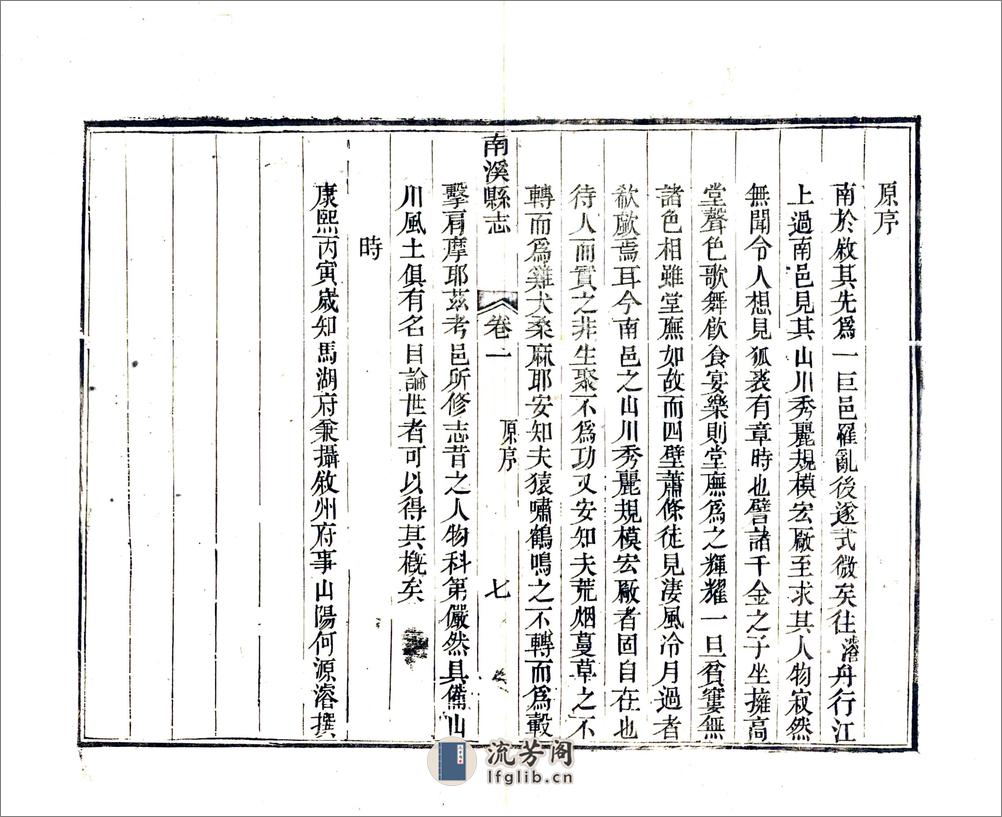 原序
南於敘其先爲一巨邑罹亂後遂式微矣往濬舟行江
上過南邑見其山川秀麗規模宏厰至求其人物寂然
無聞令人想見狐裘有章時也譬諸千金之子坐擁高
堂聲色歌舞飲食宴樂則堂廡爲之輝耀一旦貧窶無
諸色相雖堂廡如故而四壁蕭條徒見淒風冷月過者
欷歔焉耳今南邑之山川秀麗規模宏厰者固自在也
待人而實之非生聚不爲功又安知夫荒烟蔓草之不
轉而爲雞犬桑麻耶安知夫猿嘯鶴鳴之不轉而爲轂
南溪縣志
卷一
原序
七
擊肩摩耶茲考邑所修志昔之人物科第儼然具備山
川風土俱有名目論世者可以得其槪矣
時
康熙丙寅歲知馬湖府兼攝敘州府事山陽何源濬撰
流芳阁
lfglib.cn